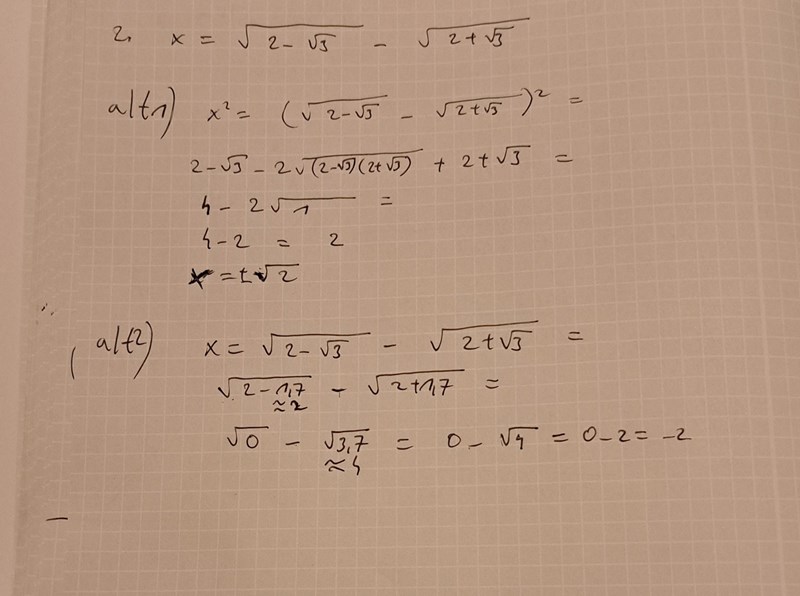 2. x = √(2-√3) - √(2+√3)
alt1) x² = (√(2-√3) - √(2+√3))² =
2-√3 - 2√((2-√3)(2+√3)) + 2+√3 =
4 - 2√1 =
4-2 = 2
x = ±√2
alt2) x = √(2-√3) - √(2+√3) =
√(2-1,7) - √(2+1,7) =
≈2
√0 - √3,7 = 0 - √4 = 0-2 = -2
≈4